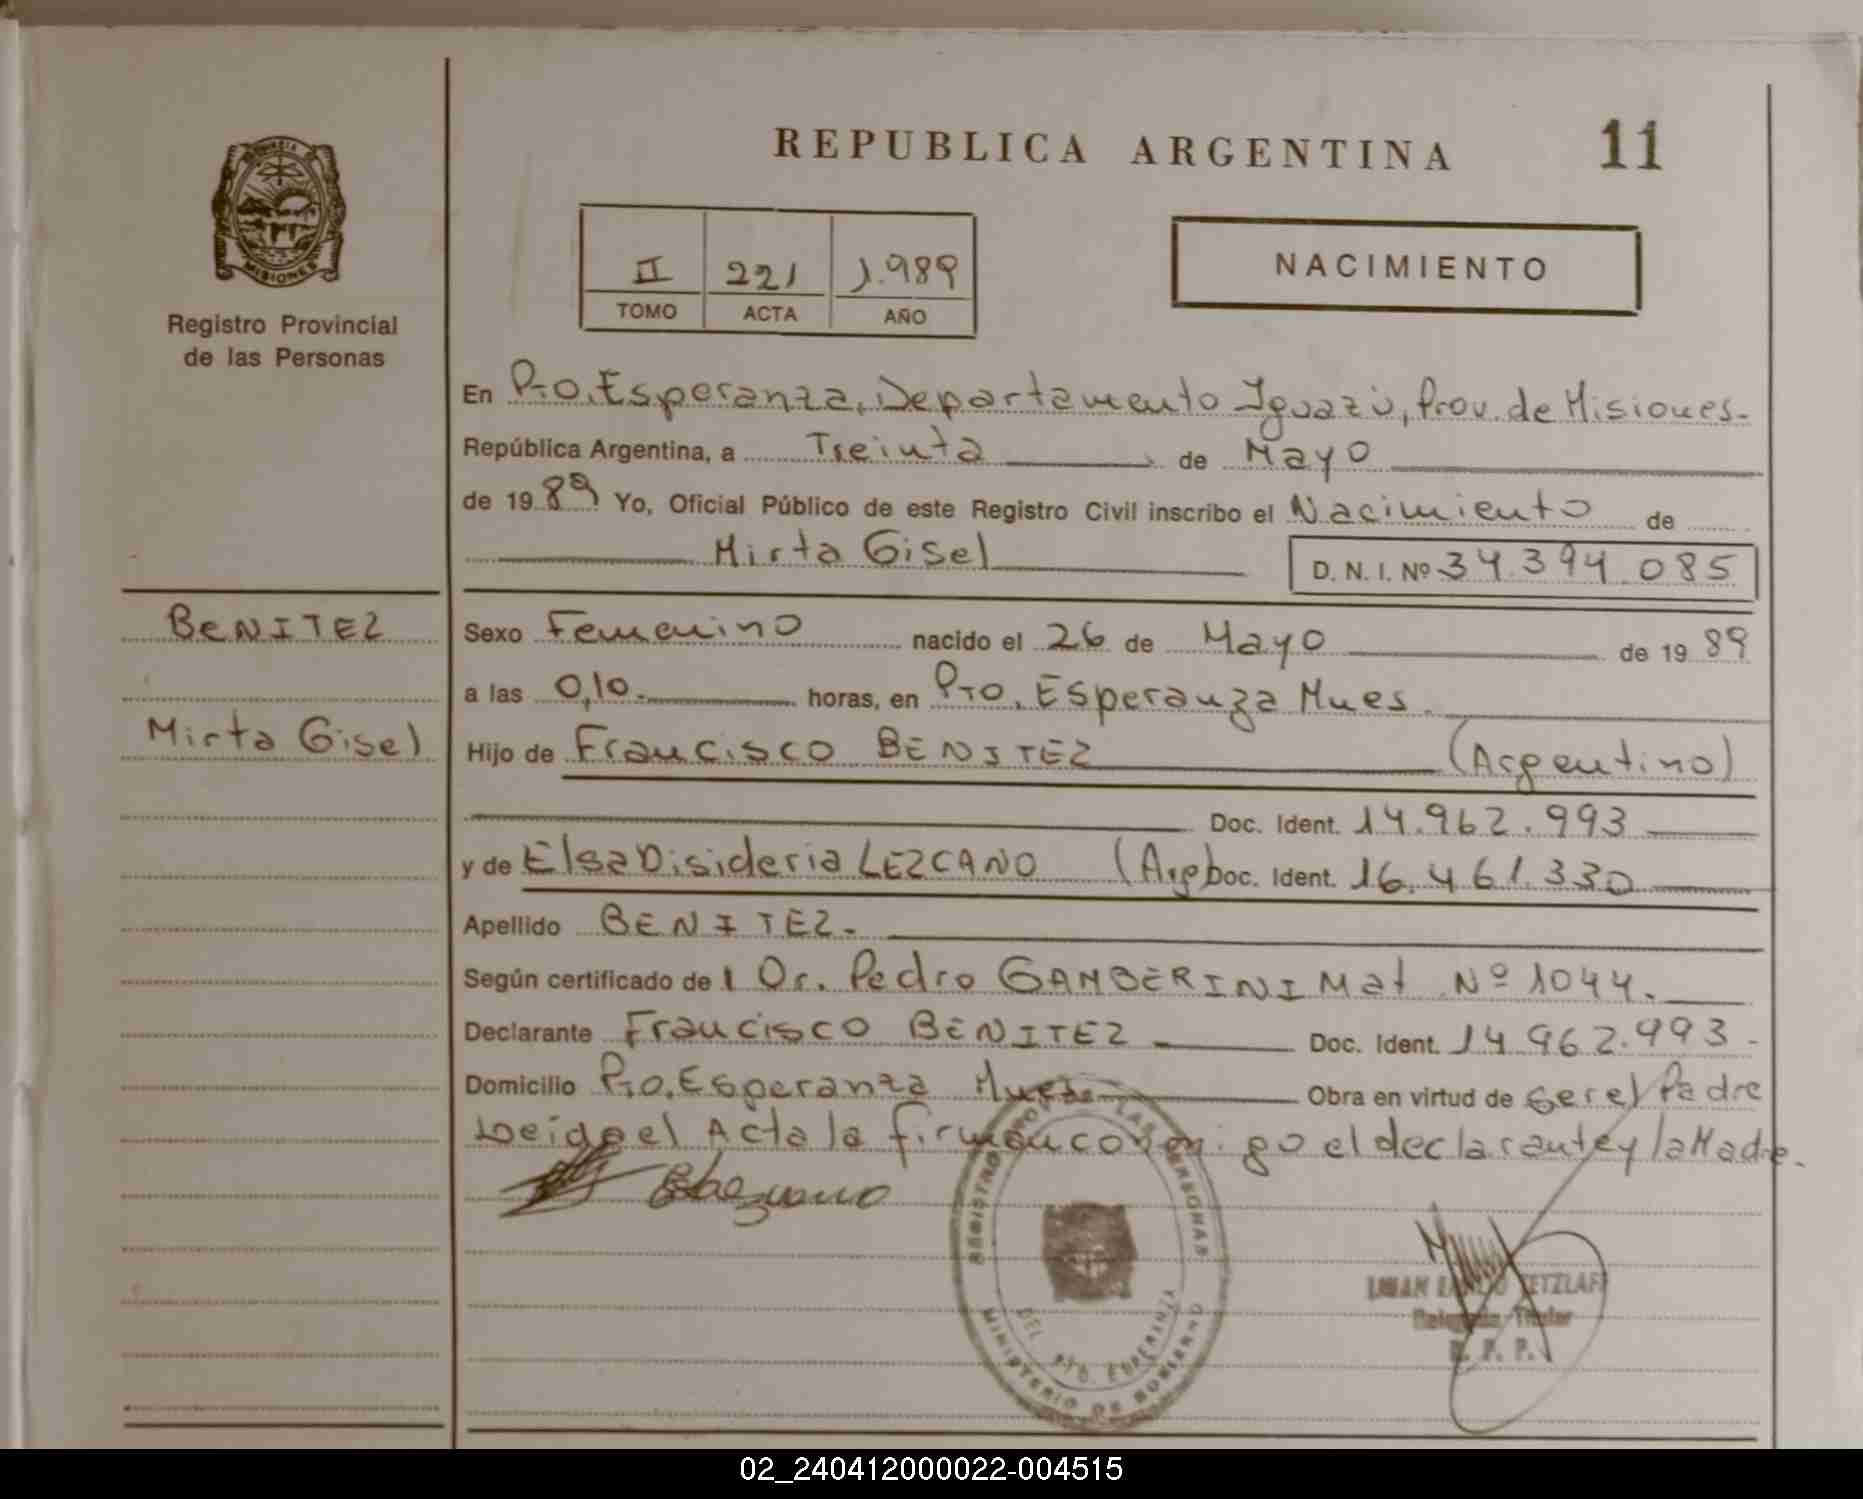 REPUBLICA ARGENTINA
11
MISIONES
Registro Provincial
de las Personas
II 221 1.989
TOMO ACTA AÑO
NACIMIENTO
En Pto. Esperanza, Departamento Iguazú, Prov. de Misiones-
República Argentina, a Treinta de Mayo
de 1989 Yo, Oficial Público de este Registro Civil inscribo el Nacimiento de
Mirta Gisel D. N. I. Nº 34.394.085
BENITEZ
Mirta Gisel
Sexo Femenino nacido el 26 de Mayo de 1989
a las 0,10. horas, en Pto. Esperanza Mnes.
Hijo de Francisco BENITEZ (Argentino)
Doc. Ident. 14.962.993
y de Elsa Disideria LEZCANO (Arg) Doc. Ident. 16.461.330
Apellido BENITEZ.
Según certificado de l Dr. Pedro GAMBERINI Mat Nº 1044.
Declarante Francisco BENITEZ Doc. Ident. 14.962.993-
Domicilio Pto. Esperanza Mnes Obra en virtud de ser el Padre
Leida el Acta la firman conmigo el declarante y la Madre.
REGISTRO DE LAS PERSONAS
DEL PTO. ESPERANZA
MINISTERIO DE GOBIERNO
TETZLAFF
Titular
R. P. P.
02_240412000022-004515